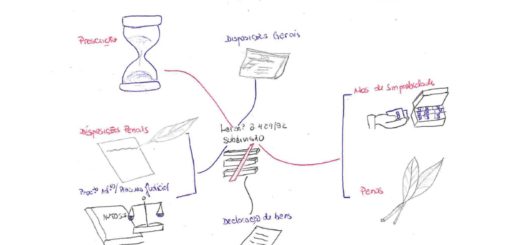 Prescrição
Disposições Gerais
Atos de Improbidade
Disposições Penais
Lei nº 8.429/92
Subdivisão
Penas
Procº Admº/Processo Judicial
AUTOS
Declaração de bens